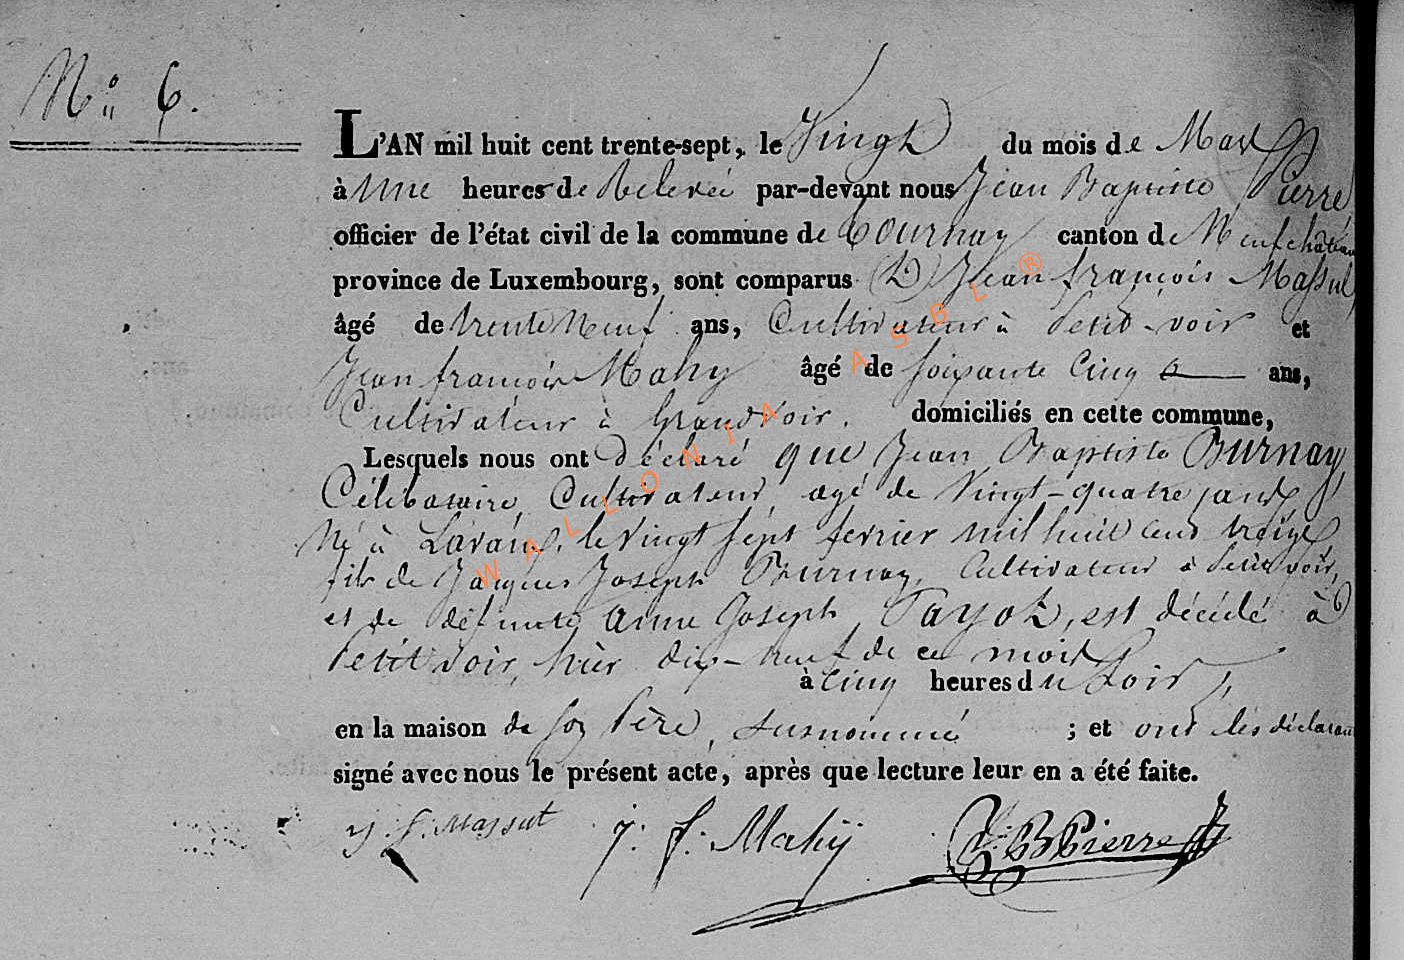 N.º 6.
L'AN mil huit cent trente-sept, le Vingt du mois de Mars
à Une heures de Relevée par-devant nous Jean Baptiste Pierre,
officier de l'état civil de la commune de Tournay canton de Neufchâteau
province de Luxembourg, sont comparus Jean françois Massul,
âgé de trente Neuf ans, Cultivateur à Petit-voir et
Jean françois Mahy âgé de soixante Cinq ans,
Cultivateur à Grandvoir. domiciliés en cette commune,
Lesquels nous ont déclaré que Jean Baptiste Burnay,
Célibataire, Cultivateur, agé de Vingt-quatre ans,
Né à Lavaux, le vingt sept fevrier mil huit cent treize
fils de Jacques Joseph Burnay, Cultivateur à Petitvoir,
et de défunte Anne Joseph Payot, est décédé à
Petitvoir, hier dix-neuf de ce mois
à cinq heures du Soir,
en la maison de son Père, susnommé ; et ont les déclarans
signé avec nous le présent acte, après que lecture leur en a été faite.
J. f. Massut J: f: Mahÿ J: B Pierre
WALLONIA ASBL ®